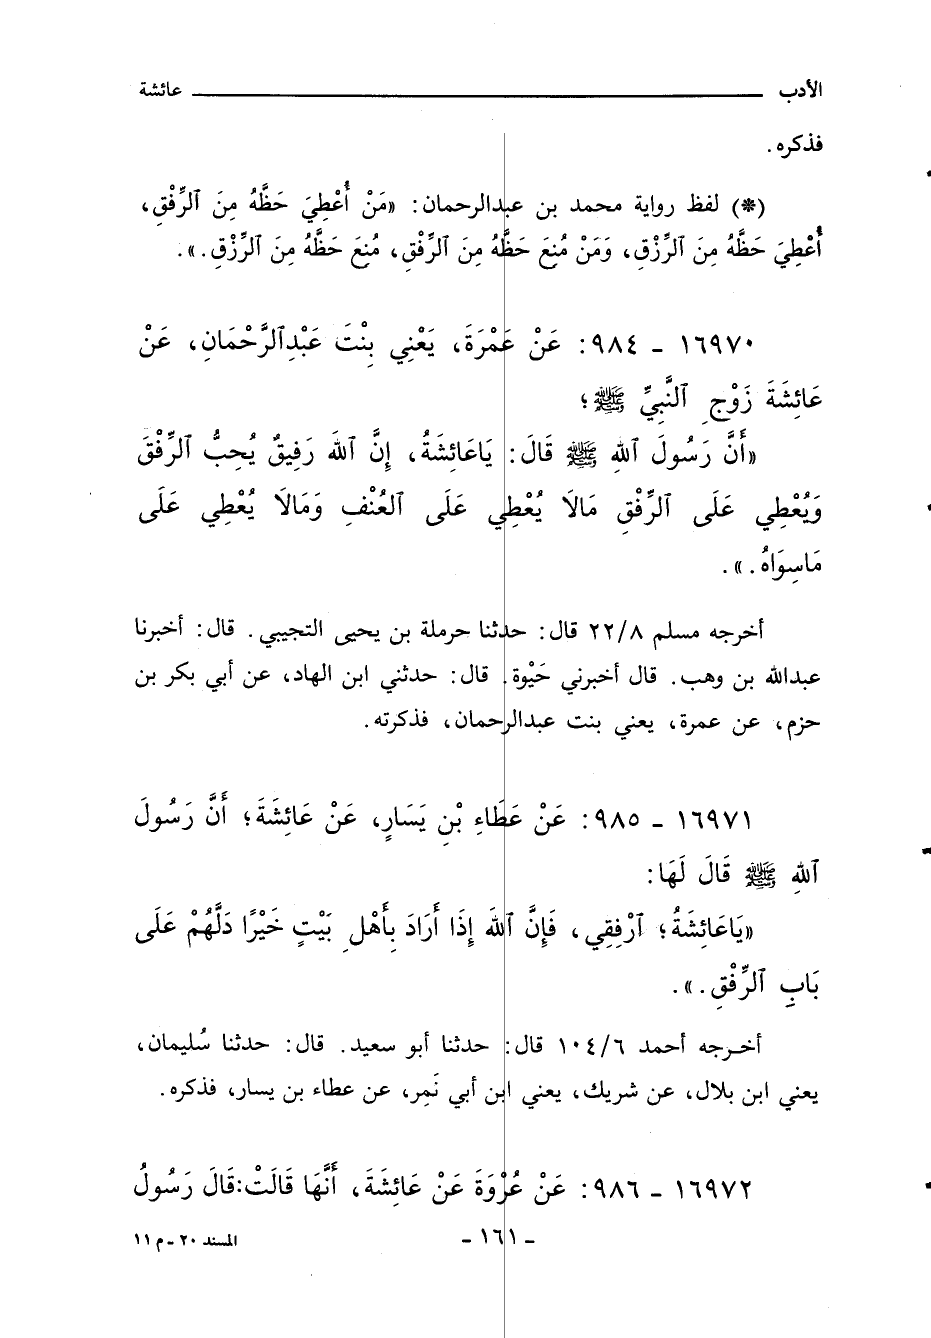 الأدب ــــــــــ عائشة
فذكره .
(*) لفظ رواية محمد بن عبدالرحمان : «مَنْ أُعْطِيَ حَظَّهُ مِنَ ٱلرِّفْقِ ،
أُعْطِيَ حَظَّهُ مِنَ ٱلرِّزْقِ ، وَمَنْ مُنِعَ حَظَّهُ مِنَ ٱلرِّفْقِ ، مُنِعَ حَظَّهُ مِنَ ٱلرِّزْقِ .» .
١٦٩٧٠ ـ ٩٨٤ : عَنْ عَمْرَةَ ، يَعْنِي بِنْتَ عَبْدِٱلرَّحْمَانِ ، عَنْ
عَائِشَةَ زَوْجِ ٱلنَّبِيِّ ﷺ ؛
«أَنَّ رَسُولَ ٱللهِ ﷺ قَالَ : يَاعَائِشَةُ ، إِنَّ ٱللهَ رَفِيقٌ يُحِبُّ ٱلرِّفْقَ
وَيُعْطِي عَلَى ٱلرِّفْقِ مَالَا يُعْطِي عَلَى ٱلعُنْفِ وَمَالَا يُعْطِي عَلَى
مَاسِوَاهُ .» .
أخرجه مسلم ٢٢/٨ قال : حدثنا حرملة بن يحيى التجيبي . قال : أخبرنا
عبدالله بن وهب . قال أخبرني حَيْوة . قال : حدثني ابن الهاد ، عن أبي بكر بن
حزم ، عن عمرة ، يعني بنت عبدالرحمان ، فذكرته .
١٦٩٧١ ـ ٩٨٥ : عَنْ عَطَاءِ بْنِ يَسَارٍ ، عَنْ عَائِشَةَ ؛ أَنَّ رَسُولَ
ٱللهِ ﷺ قَالَ لَهَا :
«يَاعَائِشَةُ ؛ ٱرْفِقِي ، فَإِنَّ ٱللهَ إِذَا أَرَادَ بِأَهْلِ بَيْتٍ خَيْرًا دَلَّهُمْ عَلَى
بَابِ ٱلرِّفْقِ .» .
أخرجه أحمد ١٠٤/٦ قال : حدثنا أبو سعيد . قال : حدثنا سُليمان ،
يعني ابن بلال ، عن شريك ، يعني ابن أبي نَمِر ، عن عطاء بن يسار ، فذكره .
١٦٩٧٢ ـ ٩٨٦ : عَنْ عُرْوَةَ عَنْ عَائِشَةَ ، أَنَّهَا قَالَتْ : قَالَ رَسُولُ
ـ ١٦١ ـ
المسند ٢٠ ـ م ١١